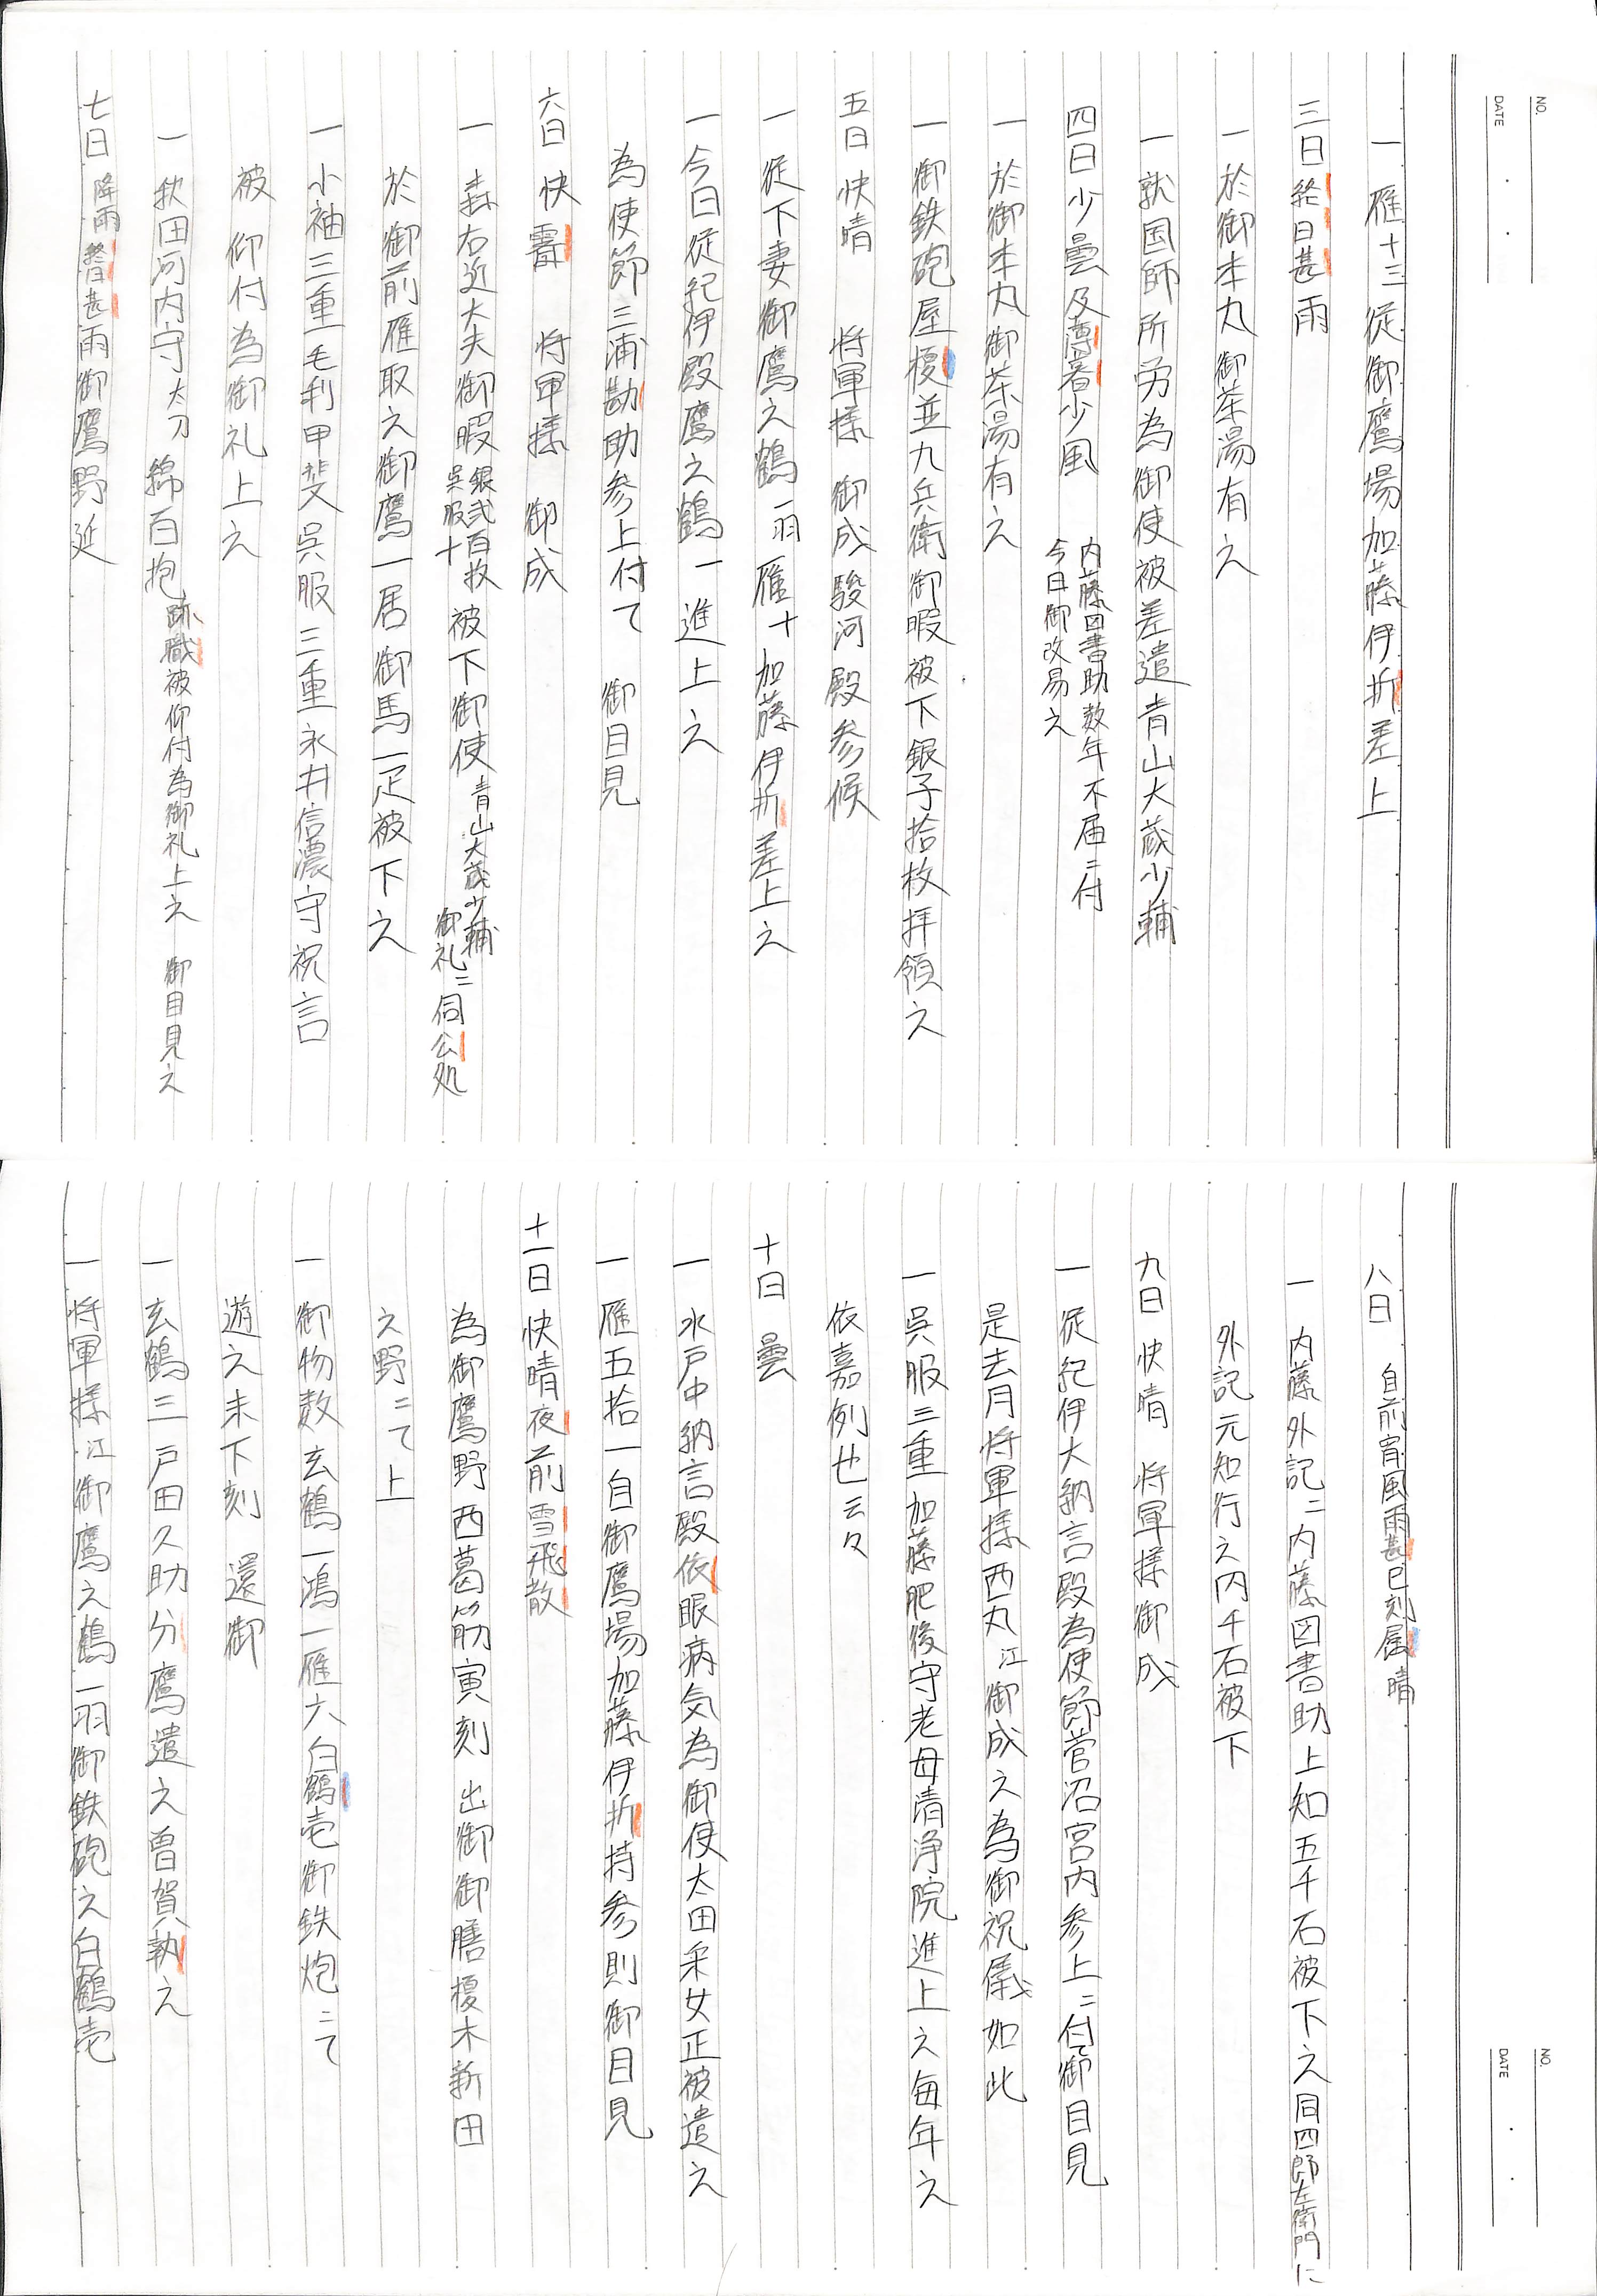 NO.
DATE
一 雁十三従御鷹場加藤伊折差上
三日終日甚雨
一於御本丸御茶湯有之
一就国師所労為御使被差遣青山大蔵少輔
四日少曇及薄暑少風 内藤図書助数年不届ニ付
今日御改易之
一於御本丸御茶湯有之
一御鉄砲屋榎並九兵衛御暇被下銀子拾枚拝領之
五日快晴 将軍様 御成駿河殿参候
一従下妻御鷹之鶴一羽雁十加藤伊折差上之
一今日従紀伊殿鷹之鶴一進上之
為使節三浦勘助参上付て 御目見
六日快霽 将軍様 御成
一森右近大夫御暇銀弐百枚呉服十被下御使青山大蔵少輔御礼ニ伺公処
於御前雁取之御鷹一居御馬一疋被下之
一小袖三重毛利甲斐呉服三重永井信濃守祝言
被 仰付為御礼上之
一秋田河内守太刀 綿百抱跡職被仰付為御礼上之 御目見之
七日降雨終日甚雨御鷹野延
NO.
DATE
八日 自前宵風雨甚巳刻属晴
一 内藤外記ニ内藤図書助上知五千石被下之同四郎左衛門に
外記元知行之内千石被下
九日快晴 将軍様御成
一従紀伊大納言殿為使節菅沼宮内参上ニ付御目見
是去月将軍様西丸江御成之為御祝儀如此
一呉服三重加藤肥後守老母清浄院進上之毎年之
依嘉例也云々
十日 曇
一水戸中納言殿依眼病気為御使太田采女正被遣之
一雁五拾一自御鷹場加藤伊折持参則御目見
十一日快晴夜前雪飛散
為御鷹野西葛筋寅刻 出御御膳榎木新田
之野ニて上
一御物数玄鶴一鴻一雁六白鶴壱御鉄炮ニて
遊之未下刻 還御
一玄鶴三戸田久助分鷹遣之曽賀執之
一将軍様江御鷹之鶴一羽御鉄砲之白鶴壱